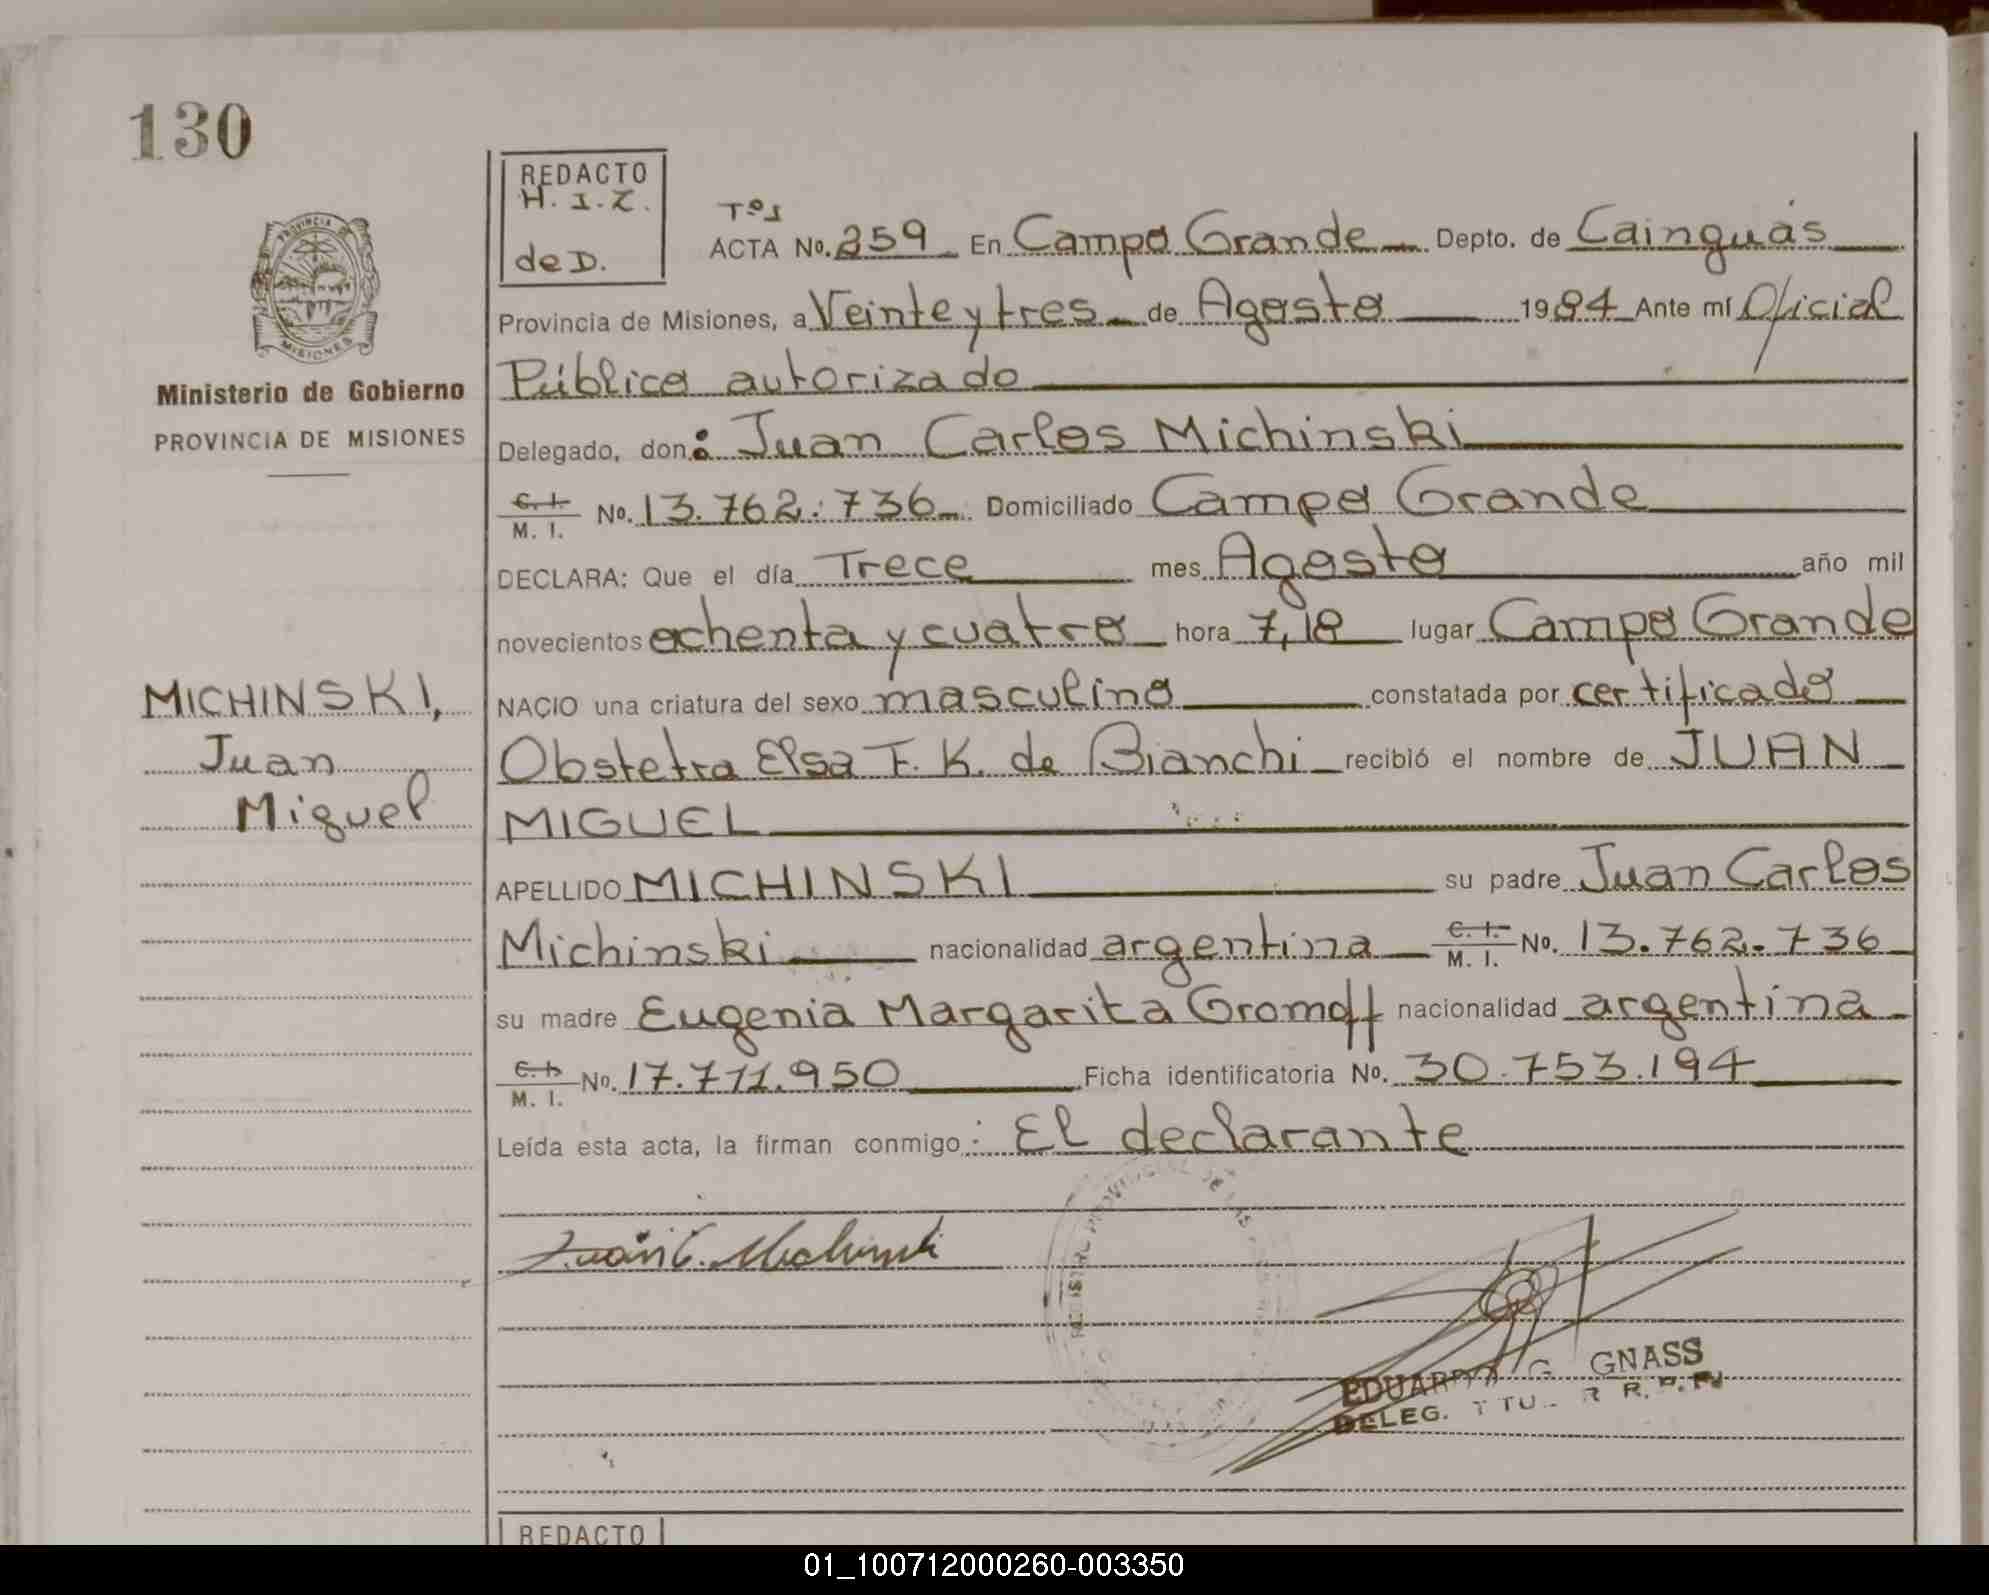 130
REDACTO
H. I. Z.
de D.
PROVINCIA DE
MISIONES
Ministerio de Gobierno
PROVINCIA DE MISIONES
Tº1
ACTA No. 259 En Campo Grande Depto. de Cainguás
Provincia de Misiones, a Veinte y tres de Agosto 1984 Ante mí Oficial
Público autorizado
Delegado, don: Juan Carlos Michinski
C. I.
M. I. No. 13.762.736 Domiciliado Campo Grande
DECLARA: Que el día Trece mes Agosto año mil
novecientos ochenta y cuatro hora 7,18 lugar Campo Grande
MICHINSKI,
Juan
Miguel
NACIO una criatura del sexo masculino constatada por certificado
Obstetra Elsa F. K. de Bianchi recibió el nombre de JUAN
MIGUEL
APELLIDO MICHINSKI su padre Juan Carlos
Michinski nacionalidad argentina C. I. M. I. No. 13.762.736
su madre Eugenia Margarita Gromoff nacionalidad argentina
C. I.
M. I. No. 17.711.950 Ficha identificatoria No. 30.753.194
Leída esta acta, la firman conmigo: El declarante
Juan C. Michinski
EDUARDO G. GNASS
DELEG.
REDACTO
01_100712000260-003350